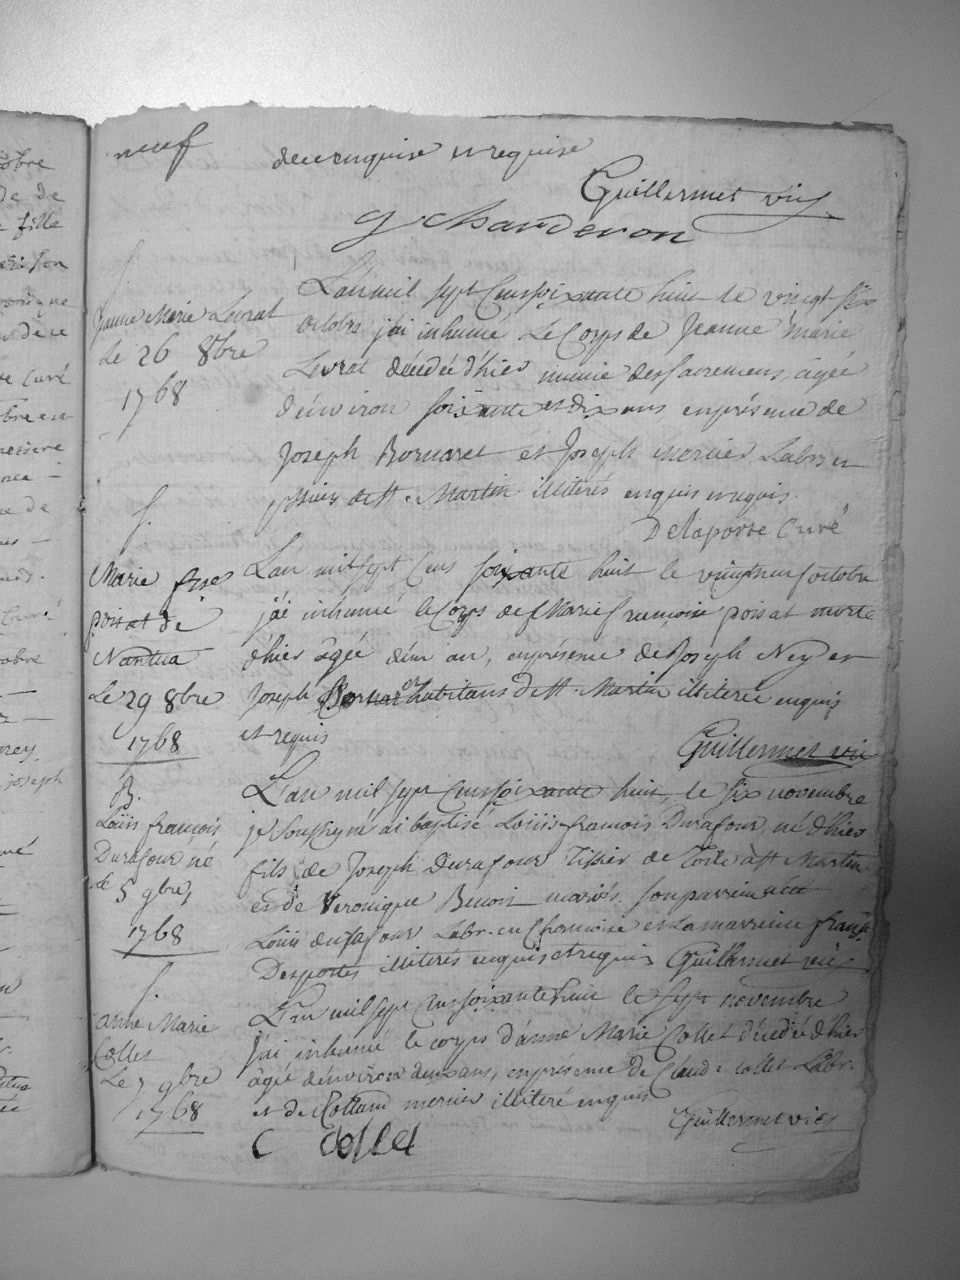 neuf
de ce enquise et requise
Guillermet vic
g chanderon
S.
Jeanne Marie Levrat
le 26 8bre
1768
L'an mil sept cens soixante huit le vingt six
octobre j'ai inhumé le Corps de Jeanne Marie
Levrat décédée d'hier munie des sacremens, agée
d'environ soixante et dix ans en présence de
Joseph Bornaret et Joseph mernier Labrs en
de St. Martin illiterés enquis requis.
Delaporte Curé
S.
Marie fse
poisat de
Nantua
Le 29 8bre
1768
L'an mil sept cens soixante huit le vingt neuf octobre
j'ai inhumé le Corps de Marie françoise poisat morte
d'hier âgée d'un an, en présence de Joseph Ney et
Joseph habitans de St Martin illiteré enquis
et requis
Guillermet vic
B.
Louis françois
Durafour né
le 5 9bre
1768
L'an mil sept cens soixante huit, le six novembre
je soussigné ai baptisé Louis françois Durafour, né d'hier
fils de Joseph Durafour Tissier de Toile a St Martin
et de Veronique Benoit mariés, son parrein a été
Louis durafour Labr. en Chamoise et La marreine franse
Desportes illiterés enquis et requis Guillermet vic
S.
anne Marie
Collet
Le 7 9bre
1768
L'an mil sept cens soixante huit le sept novembre
j'ai inhumé le corps d'anne Marie Collet décédée d'hier
âgée d'environ deux ans, en présence de Claude Collet Labr.
et de Rolland mernier illiteré enquis
Guillermet vic
C collet